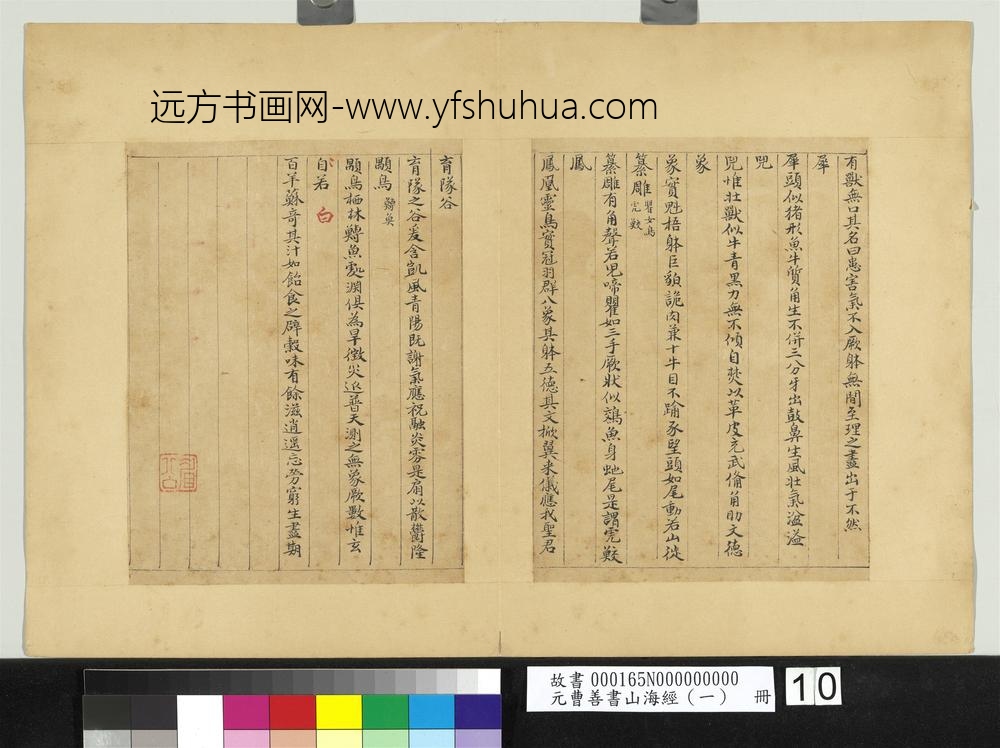 远方书画网-www.yfshuhua.com
有獸無口其名曰患害氣不入厥躰無間至理之盡出于不然
犀
犀頭似猪形魚牛質角生不併三分牙出鼓鼻生風壯氣溢溢
兕
兕惟壯獸似牛青黑力無不傾自焚以革皮充武俻角助文德
象
象實魁梧躰巨貌詭肉兼十牛目不踰豕望頭如尾動若山徙
纂雕
瞿女鳥
纂雕有角聲若児啼瞿如三手厥狀似鵁魚身虵尾是謂虎鮫
鳳
鳳凰靈鳥實冠羽群八象其躰五德其文掀翼来儀應我聖君
育隊谷
育隊之谷爰含凱風青陽既謝氣應祝融炎雰是扇以散鬱隆
顒鳥
鱄奠
顒鳥栖林鱄魚處渊俱為旱徵灾延普天測之無象厥數惟玄
自若
白
百羊蘇竒其汁如飴食之辟穀味有餘滋逍遥忘勞窮生盡期
故書 000165N000000000
元曹善書山海經(一) 冊
10